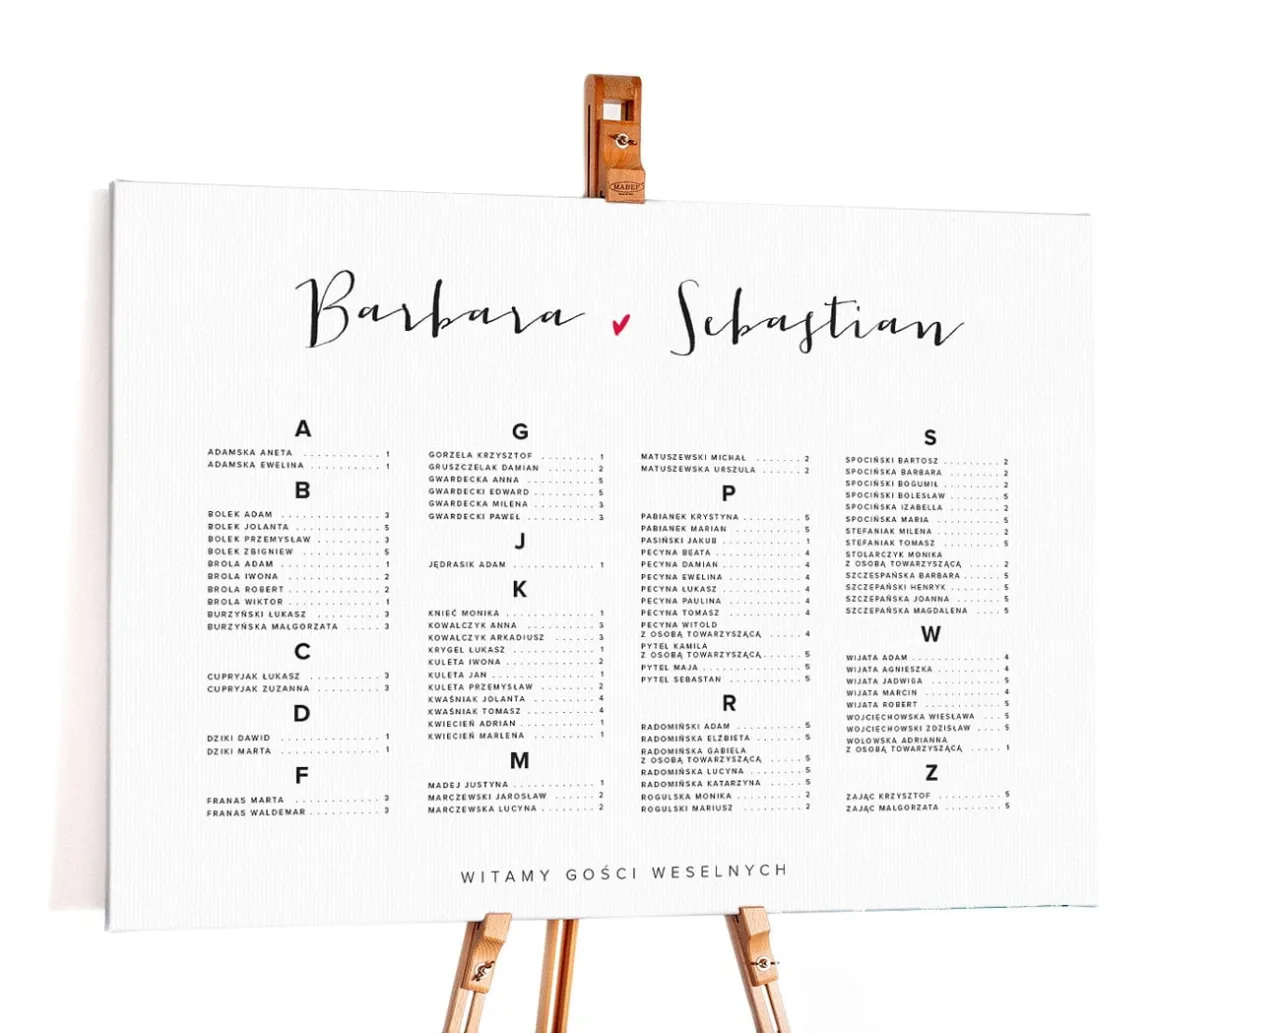 MABEF
Barbara Sebastian
A
ADAMSKA ANETA . . . . . . . . . . . . 1
ADAMSKA EWELINA . . . . . . . . . . . 1
B
BOLEK ADAM . . . . . . . . . . . . . 3
BOLEK JOLANTA . . . . . . . . . . . . 5
BOLEK PRZEMYSŁAW . . . . . . . . . . 3
BOLEK ZBIGNIEW . . . . . . . . . . . 5
BROLA ADAM . . . . . . . . . . . . . 1
BROLA IWONA . . . . . . . . . . . . . 2
BROLA ROBERT . . . . . . . . . . . . 2
BROLA WIKTOR . . . . . . . . . . . . 1
BURZYŃSKI ŁUKASZ . . . . . . . . . . 3
BURZYŃSKA MAŁGORZATA . . . . . 3
C
CUPRYJAK ŁUKASZ . . . . . . . . . . . 3
CUPRYJAK ZUZANNA . . . . . . . . . . 3
D
DZIKI DAWID . . . . . . . . . . . . . 1
DZIKI MARTA . . . . . . . . . . . . . 1
F
FRANAS MARTA . . . . . . . . . . . . 3
FRANAS WALDEMAR . . . . . . . . . . 3
G
GORZELA KRZYSZTOF . . . . . . . . . 1
GRUSZCZELAK DAMIAN . . . . . . . . 2
GWARDECKA ANNA . . . . . . . . . . . 5
GWARDECKI EDWARD . . . . . . . . . . 5
GWARDECKA MILENA . . . . . . . . . . 3
GWARDECKI PAWEŁ . . . . . . . . . . . 3
J
JĘDRASIK ADAM . . . . . . . . . . . . 1
K
KNIEĆ MONIKA . . . . . . . . . . . . 1
KOWALCZYK ANNA . . . . . . . . . . . 3
KOWALCZYK ARKADIUSZ . . . . . . . 3
KRYGEL ŁUKASZ . . . . . . . . . . . . 1
KULETA IWONA . . . . . . . . . . . . 2
KULETA JAN . . . . . . . . . . . . . 1
KULETA PRZEMYSŁAW . . . . . . . . . 2
KWAŚNIAK JOLANTA . . . . . . . . . . 4
KWAŚNIAK TOMASZ . . . . . . . . . . . 4
KWIECIEŃ ADRIAN . . . . . . . . . . . 1
KWIECIEŃ MARLENA . . . . . . . . . . 1
M
MADEJ JUSTYNA . . . . . . . . . . . . 1
MARCZEWSKI JAROSŁAW . . . . . . . 2
MARCZEWSKA LUCYNA . . . . . . . . . 2
MATUSZEWSKI MICHAŁ . . . . . . . . 2
MATUSZEWSKA URSZULA . . . . . . 2
P
PABIANEK KRYSTYNA . . . . . . . . . 5
PABIANEK MARIAN . . . . . . . . . . . 5
PASIŃSKI JAKUB . . . . . . . . . . . . 1
PECYNA BEATA . . . . . . . . . . . . 4
PECYNA DAMIAN . . . . . . . . . . . . 4
PECYNA EWELINA . . . . . . . . . . . 4
PECYNA ŁUKASZ . . . . . . . . . . . . 4
PECYNA PAULINA . . . . . . . . . . . 4
PECYNA TOMASZ . . . . . . . . . . . . 4
PECYNA WITOLD
Z OSOBĄ TOWARZYSZĄCĄ . . . . . 4
PYTEL KAMILA
Z OSOBĄ TOWARZYSZĄCĄ . . . . . 5
PYTEL MAJA . . . . . . . . . . . . . 5
PYTEL SEBASTAN . . . . . . . . . . . 5
R
RADOMIŃSKI ADAM . . . . . . . . . . 5
RADOMIŃSKA ELŻBIETA . . . . . . . 5
RADOMIŃSKA GABIELA
Z OSOBĄ TOWARZYSZĄCĄ . . . . . 5
RADOMIŃSKA LUCYNA . . . . . . . . 5
RADOMIŃSKA KATARZYNA . . . . . 5
ROGULSKA MONIKA . . . . . . . . . . 2
ROGULSKI MARIUSZ . . . . . . . . . . 2
S
SPOCIŃSKI BARTOSZ . . . . . . . . . 2
SPOCIŃSKA BARBARA . . . . . . . . . 2
SPOCIŃSKI BOGUMIŁ . . . . . . . . . 2
SPOCIŃSKI BOLESŁAW . . . . . . . . 5
SPOCIŃSKA IZABELLA . . . . . . . . . 2
SPOCIŃSKA MARIA . . . . . . . . . . . 5
STEFANIAK MILENA . . . . . . . . . . 2
STEFANIAK TOMASZ . . . . . . . . . . 5
STOLARCZYK MONIKA
Z OSOBĄ TOWARZYSZĄCĄ . . . . . 2
SZCZESPAŃSKA BARBARA . . . . . 5
SZCZEPAŃSKI HENRYK . . . . . . . . 5
SZCZEPAŃSKA JOANNA . . . . . . . 5
SZCZEPAŃSKA MAGDALENA . . . . 5
W
WIJATA ADAM . . . . . . . . . . . . . 4
WIJATA AGNIESZKA . . . . . . . . . . 4
WIJATA JADWIGA . . . . . . . . . . . 5
WIJATA MARCIN . . . . . . . . . . . . 4
WIJATA ROBERT . . . . . . . . . . . . 5
WOJCIECHOWSKA WIESŁAWA . . . 5
WOJCIECHOWSKI ZDZISŁAW . . . . 5
WOLOWSKA ADRIANNA
Z OSOBĄ TOWARZYSZĄCĄ . . . . . 1
Z
ZAJĄC KRZYSZTOF . . . . . . . . . . . 5
ZAJĄC MAŁGORZATA . . . . . . . . . . 5
WITAMY GOŚCI WESELNYCH